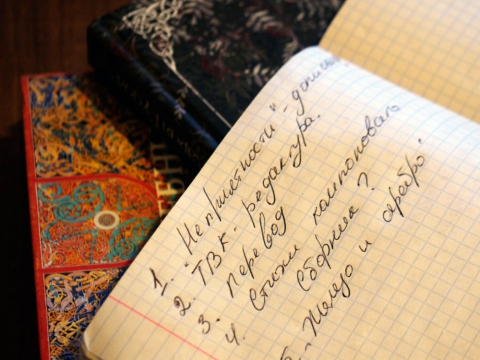 1. "Неприятности" - дописать
2. ТВК - редактура.
3. Перевод
4. Стихи компоновать
Сборник?
5. Железо и серебро